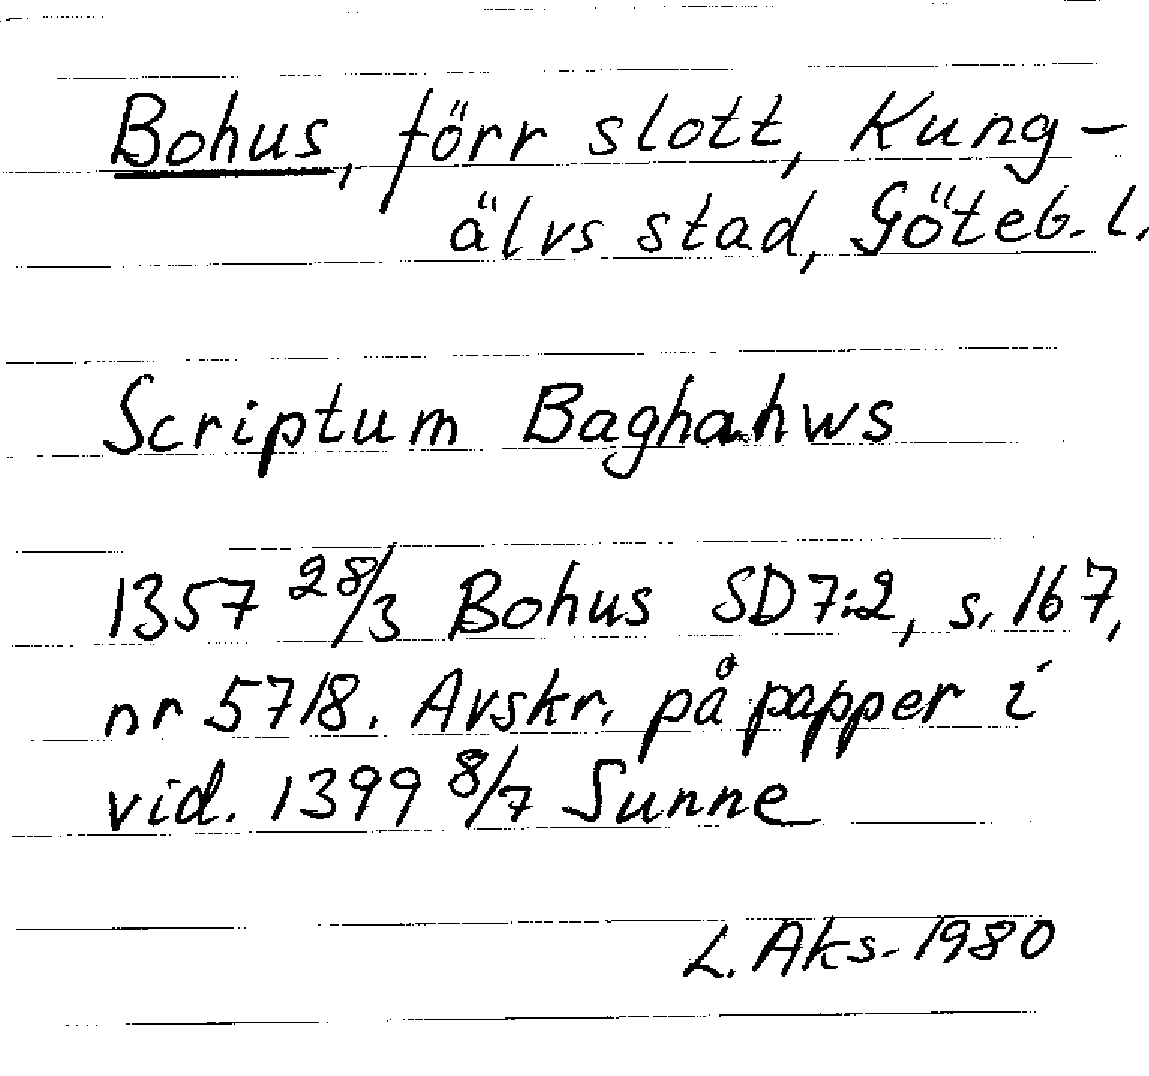 Bohus, förr slott, Kung-
älvs stad, Göteb. l.
Scriptum Baghahws
1357 28/3 Bohus SD 7:2, s. 167,
nr 5718. Avskr. på papper i
vid. 1399 8/7 Sunne
L. Aks. 1980